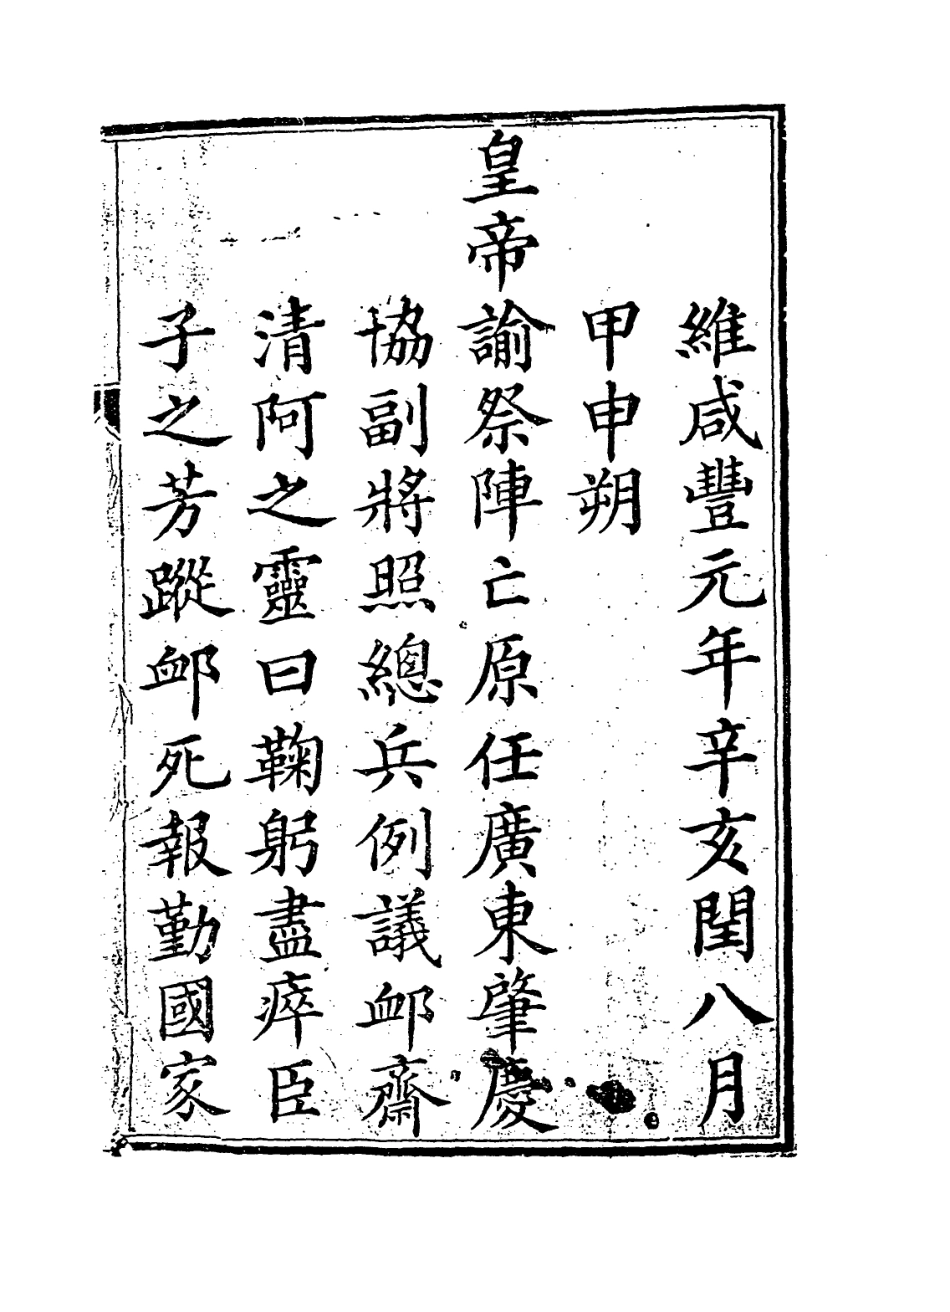 維咸豐元年辛亥閏八月
甲申朔
皇帝諭祭陣亡原任廣東肇慶
協副將照總兵例議䘏齋
清阿之靈曰鞠躬盡瘁臣
子之芳蹤䘏死報勤國家